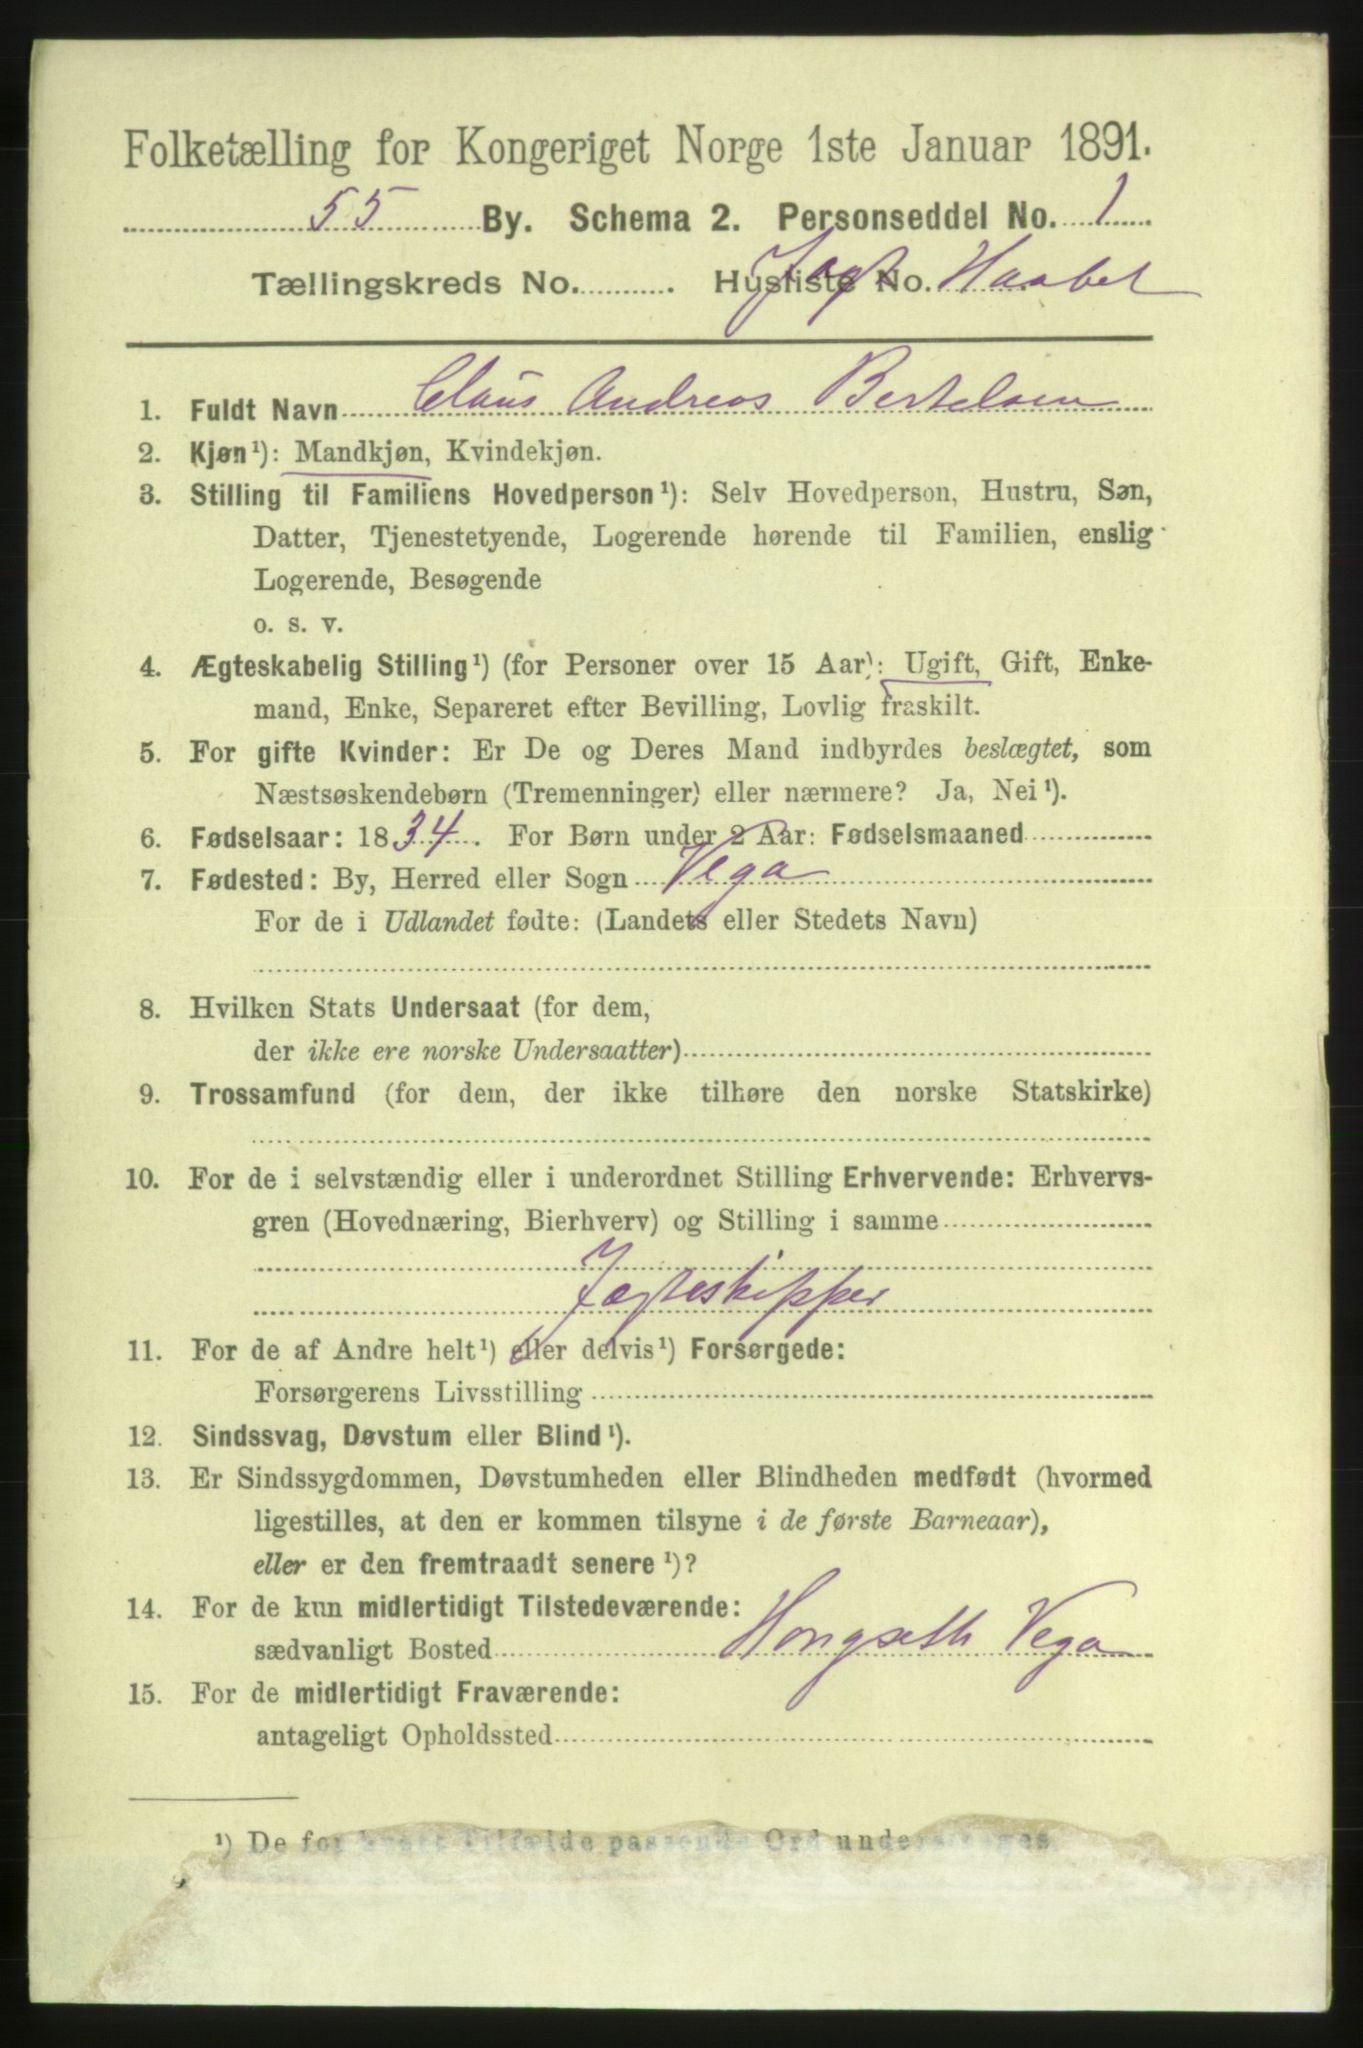 Folketælling for Kongeriget Norge 1ste Januar 1891.
55 By. Schema 2. Personseddel No. 1
Tællingskreds No. . Husliste No. Jagt Haabet
1. Fuldt Navn Claus Andreas Bertelsen
2. Kjøn¹): Mandkjøn, Kvindekjøn.
3. Stilling til Familiens Hovedperson¹): Selv Hovedperson, Hustru, Søn,
Datter, Tjenestetyende, Logerende hørende til Familien, enslig
Logerende, Besøgende
o. s. v.
4. Ægteskabelig Stilling¹) (for Personer over 15 Aar): Ugift, Gift, Enke-
mand, Enke, Separeret efter Bevilling, Lovlig fraskilt.
5. For gifte Kvinder: Er De og Deres Mand indbyrdes beslægtet, som
Næstsøskendebørn (Tremenninger) eller nærmere? Ja, Nei¹).
6. Fødselsaar: 1834. For Børn under 2 Aar: Fødselsmaaned
7. Fødested: By, Herred eller Sogn Vega
For de i Udlandet fødte: (Landets eller Stedets Navn)
8. Hvilken Stats Undersaat (for dem,
der ikke ere norske Undersaatter)
9. Trossamfund (for dem, der ikke tilhøre den norske Statskirke)
10. For de i selvstændig eller i underordnet Stilling Erhvervende: Erhvervs-
gren (Hovednæring, Bierhverv) og Stilling i samme
Jagteskipper
11. For de af Andre helt¹) eller delvis¹) Forsørgede:
Forsørgerens Livsstilling
12. Sindssvag, Døvstum eller Blind¹).
13. Er Sindssygdommen, Døvstumheden eller Blindheden medfødt (hvormed
ligestilles, at den er kommen tilsyne i de første Barneaar),
eller er den fremtraadt senere¹)?
14. For de kun midlertidigt Tilstedeværende:
sædvanligt Bosted Hongseth Vega
15. For de midlertidigt Fraværende:
antageligt Opholdssted
¹) De for hvert Tilfælde passende Ord understreges